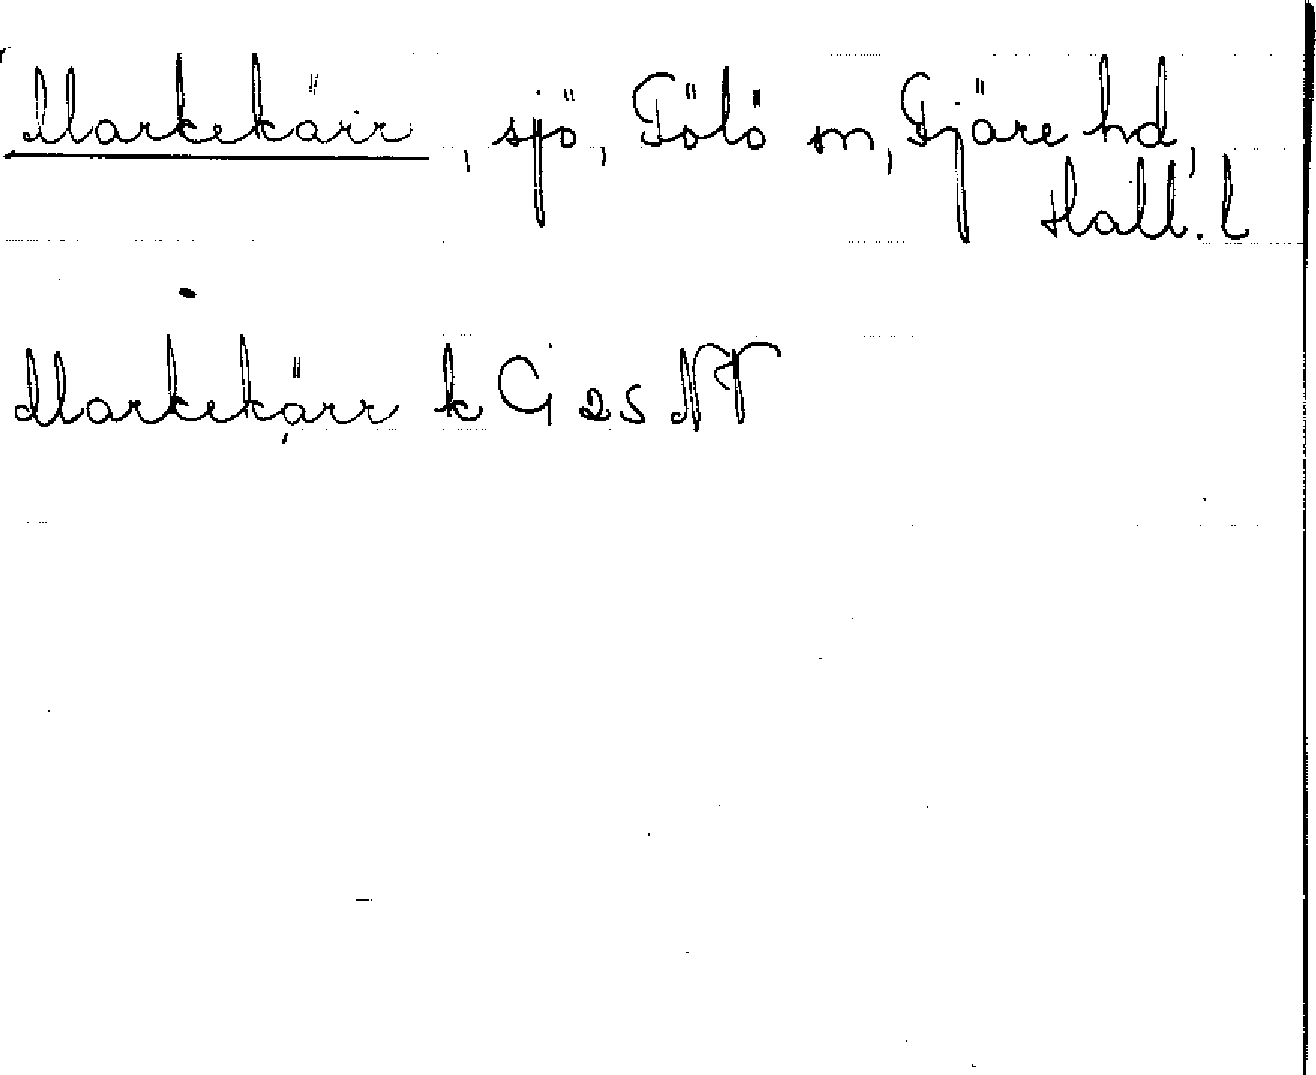 Markekärr, sjö, Fölö sn, Fjäre hd,
Hall. l
Markekärr k G 25 NV